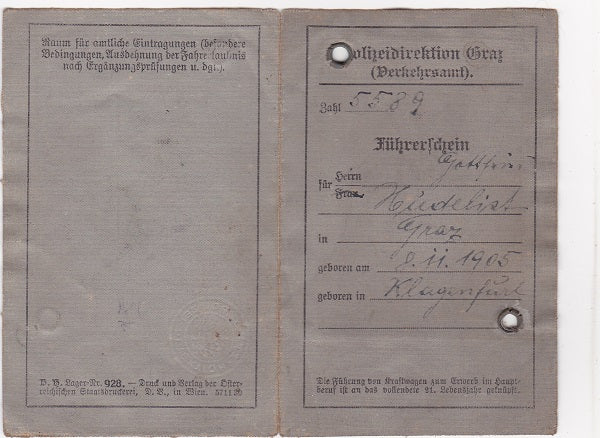 Raum für amtliche Eintragungen (besondere
Bedingungen, Ausdehnung der Fahrerlaubnis
nach Ergänzungsprüfungen u. dgl.).
V. H. Lager-Nr. 928. — Druck und Verlag der Öster-
reichischen Staatsdruckerei, D. B., in Wien. 5711 29
Polizeidirektion Graz
(Verkehrsamt).
Zahl 5589
Führerschein
für Herrn Gottfried
Frau Hudelist
in Graz
geboren am 8. 11. 1905
geboren in Klagenfurt
Die Führung von Kraftwagen zum Erwerb im Haupt-
beruf ist an das vollendete 21. Lebensjahr geknüpft.